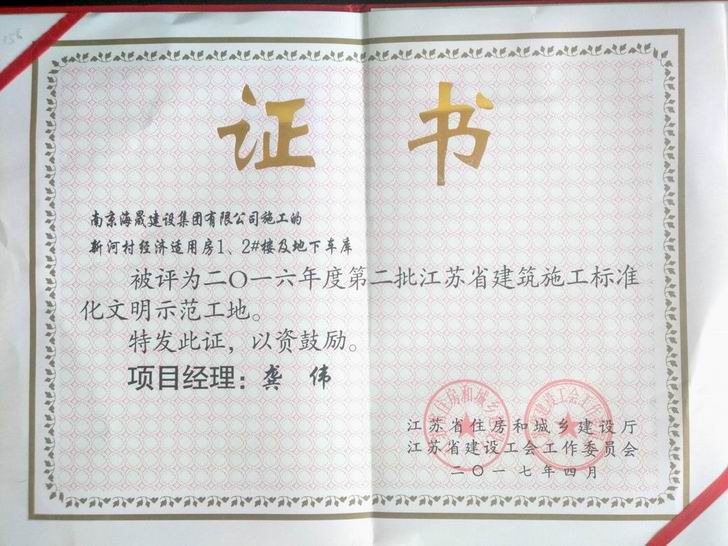 证书
南京海晟建设集团有限公司施工的
新河村经济适用房1、2#楼及地下车库
被评为二〇一六年度第二批江苏省建筑施工标准
化文明示范工地。
特发此证，以资鼓励。
项目经理：龚 伟
江苏省住房和城乡建设厅
江苏省建设工会工作委员会
二〇一七年四月